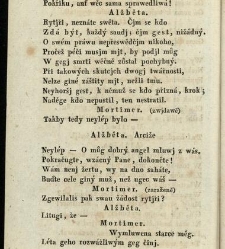 Pokřiku, anť wěc sama sprawedliwá!
Alžběta.
Rytjři, neznáte swěta. Čjm se kdo
Zdá býť, každý saudj; čjm gest, nižádný.
O swém práwu nepřeswědčjm nikoho,
Pročež péči musjm mjt, by podjl můg
W gegj smrti wěčně zůstal pochybný.
Při takowých skutcjch dwogj twárnosti,
Nelze giné záštity mjt, nežli tmu.
Neyhoršj gest, k němuž se kdo přizná, krok;
Naděge kdo nepustil, ten nestratil.
Mortimer. (zwjdawě)
Takby tedy neylép bylo —
Alžběta. Arciže
Neylép — O můg dobrý angel mluwj z wás.
Pokračugte, wzácný Pane, dokončte!
Wám nenj žertu, wy na dno saháte,
Budte celé giný muž, než ugec wáš —
Mortimer. (zaražený)
Zgewilalis pak swau žádost rytjři?
Alžběta.
Litugi, že —
Mortimer.
Wymluwena starce még.
Léta geho rozwážliwým geg činj.